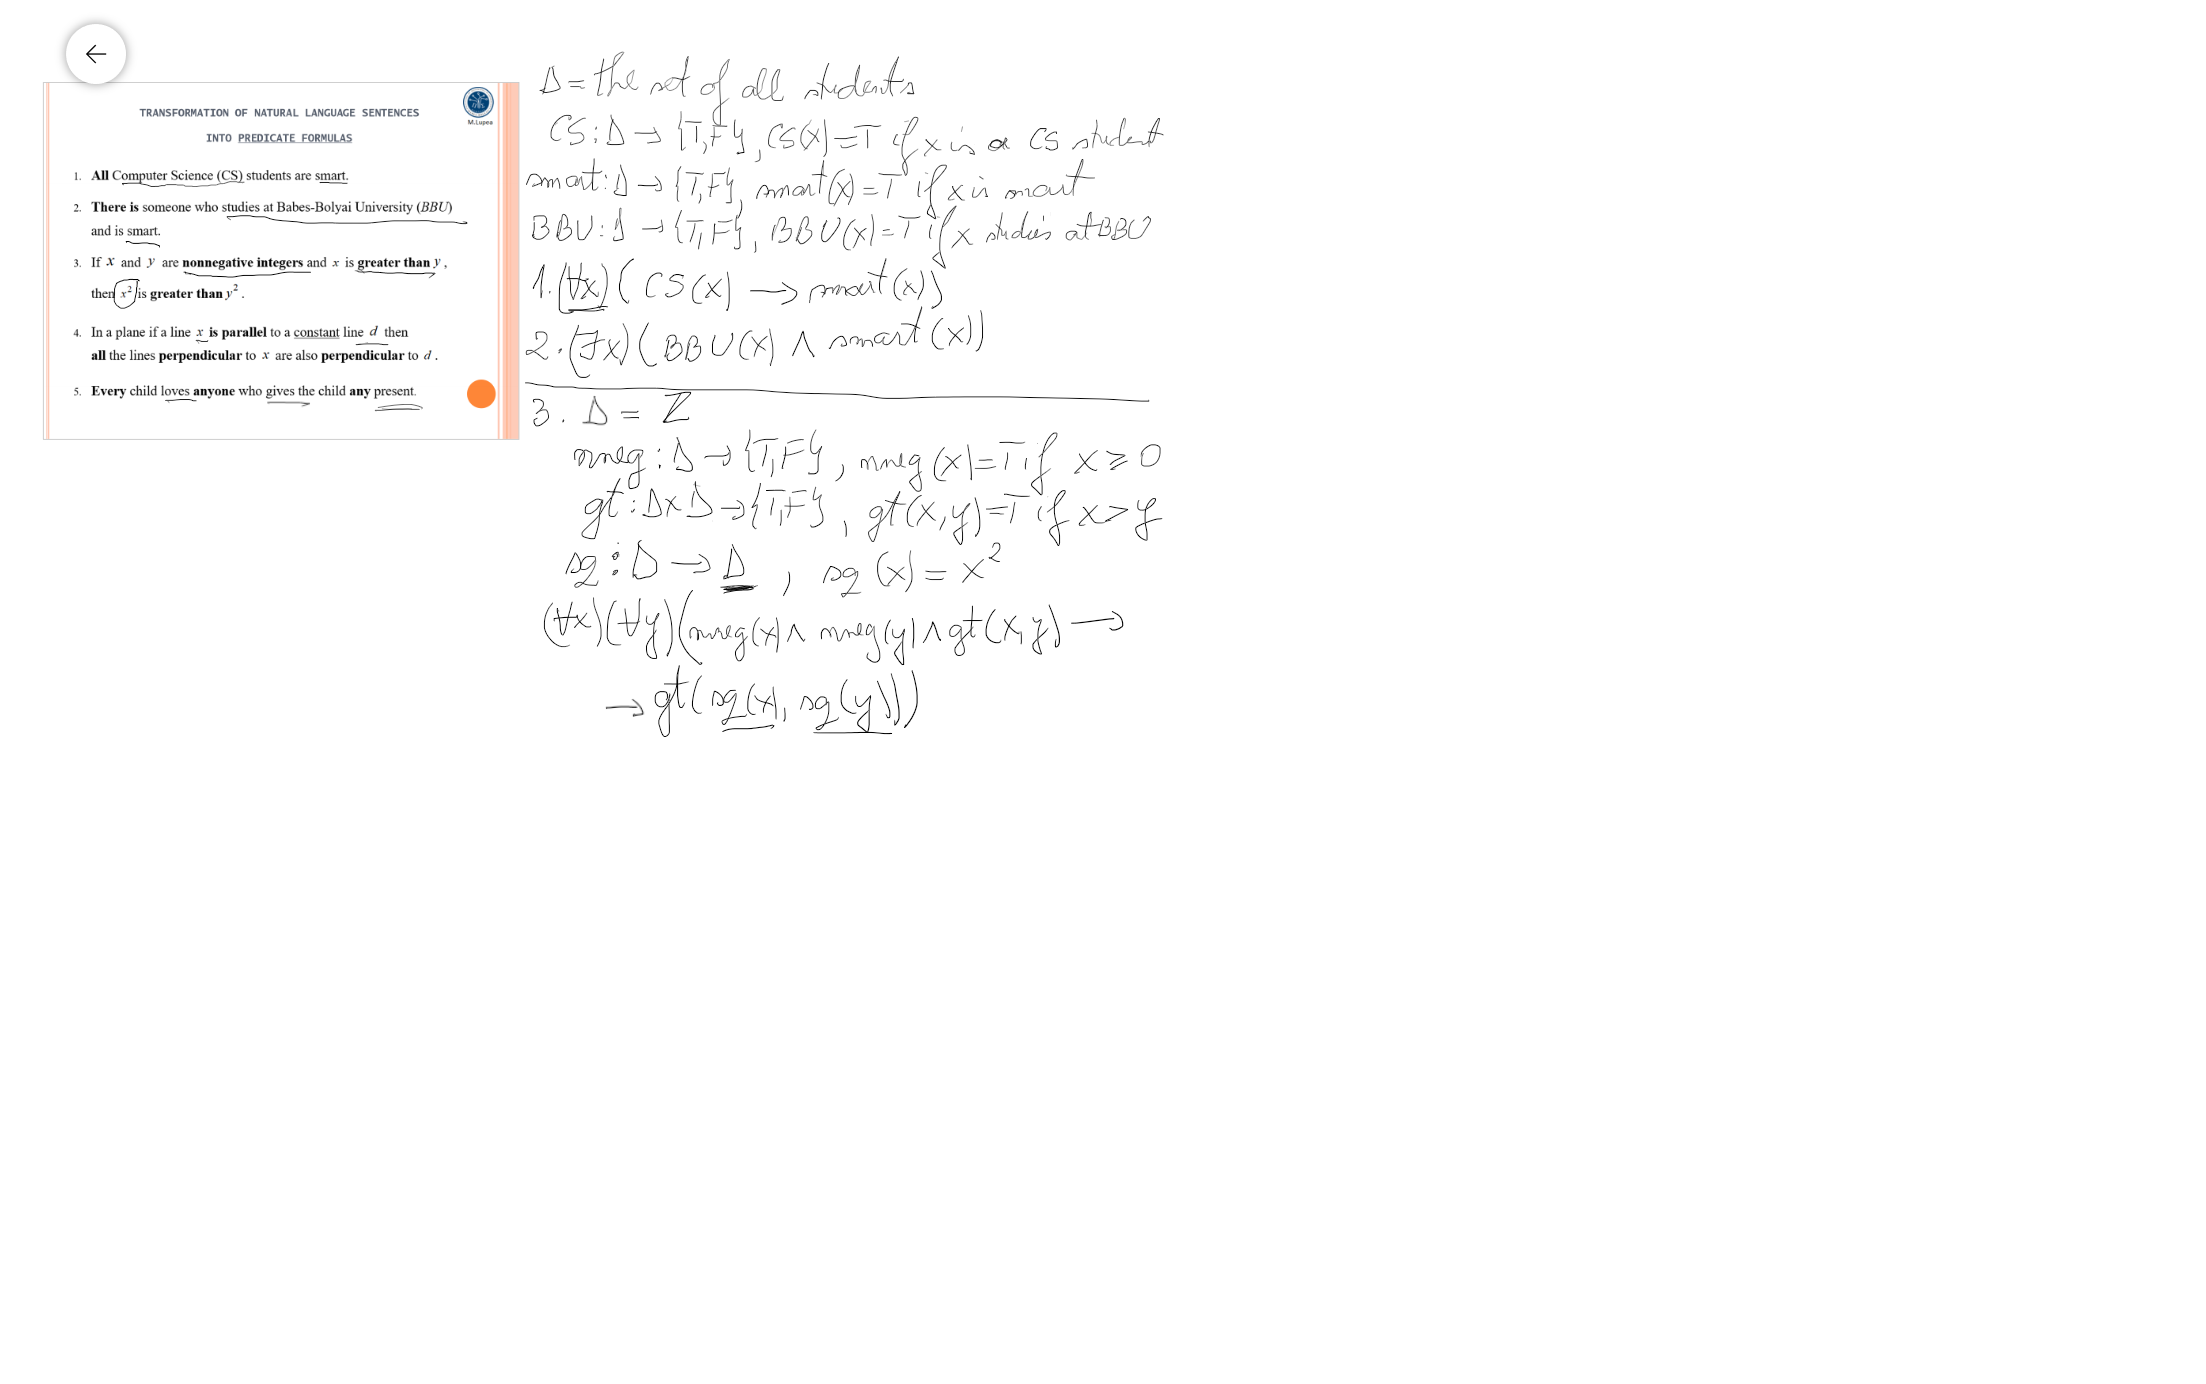 TRANSFORMATION OF NATURAL LANGUAGE SENTENCES
INTO PREDICATE FORMULAS
M.Lupea
1. All Computer Science (CS) students are smart.
2. There is someone who studies at Babes-Bolyai University (BBU)
and is smart.
3. If x and y are nonnegative integers and x is greater than y,
then x² is greater than y².
4. In a plane if a line x is parallel to a constant line d then
all the lines perpendicular to x are also perpendicular to d.
5. Every child loves anyone who gives the child any present.
D = the set of all students
CS: D → {T,F}, CS(x)=T if x is a CS student
smart: D → {T,F}, smart(x)=T if x is smart
BBU: D → {T,F}, BBU(x)=T if x studies at BBU
1. (∀x)(CS(x) → smart(x))
2. (∃x)(BBU(x) ∧ smart(x))
3. D = Z
nneg: D → {T,F}, nneg(x)=T if x ≥ 0
gt: D×D → {T,F}, gt(x,y)=T if x > y
sq: D → D, sq(x) = x²
(∀x)(∀y)(nneg(x) ∧ nneg(y) ∧ gt(x,y) →
→ gt(sq(x), sq(y)))